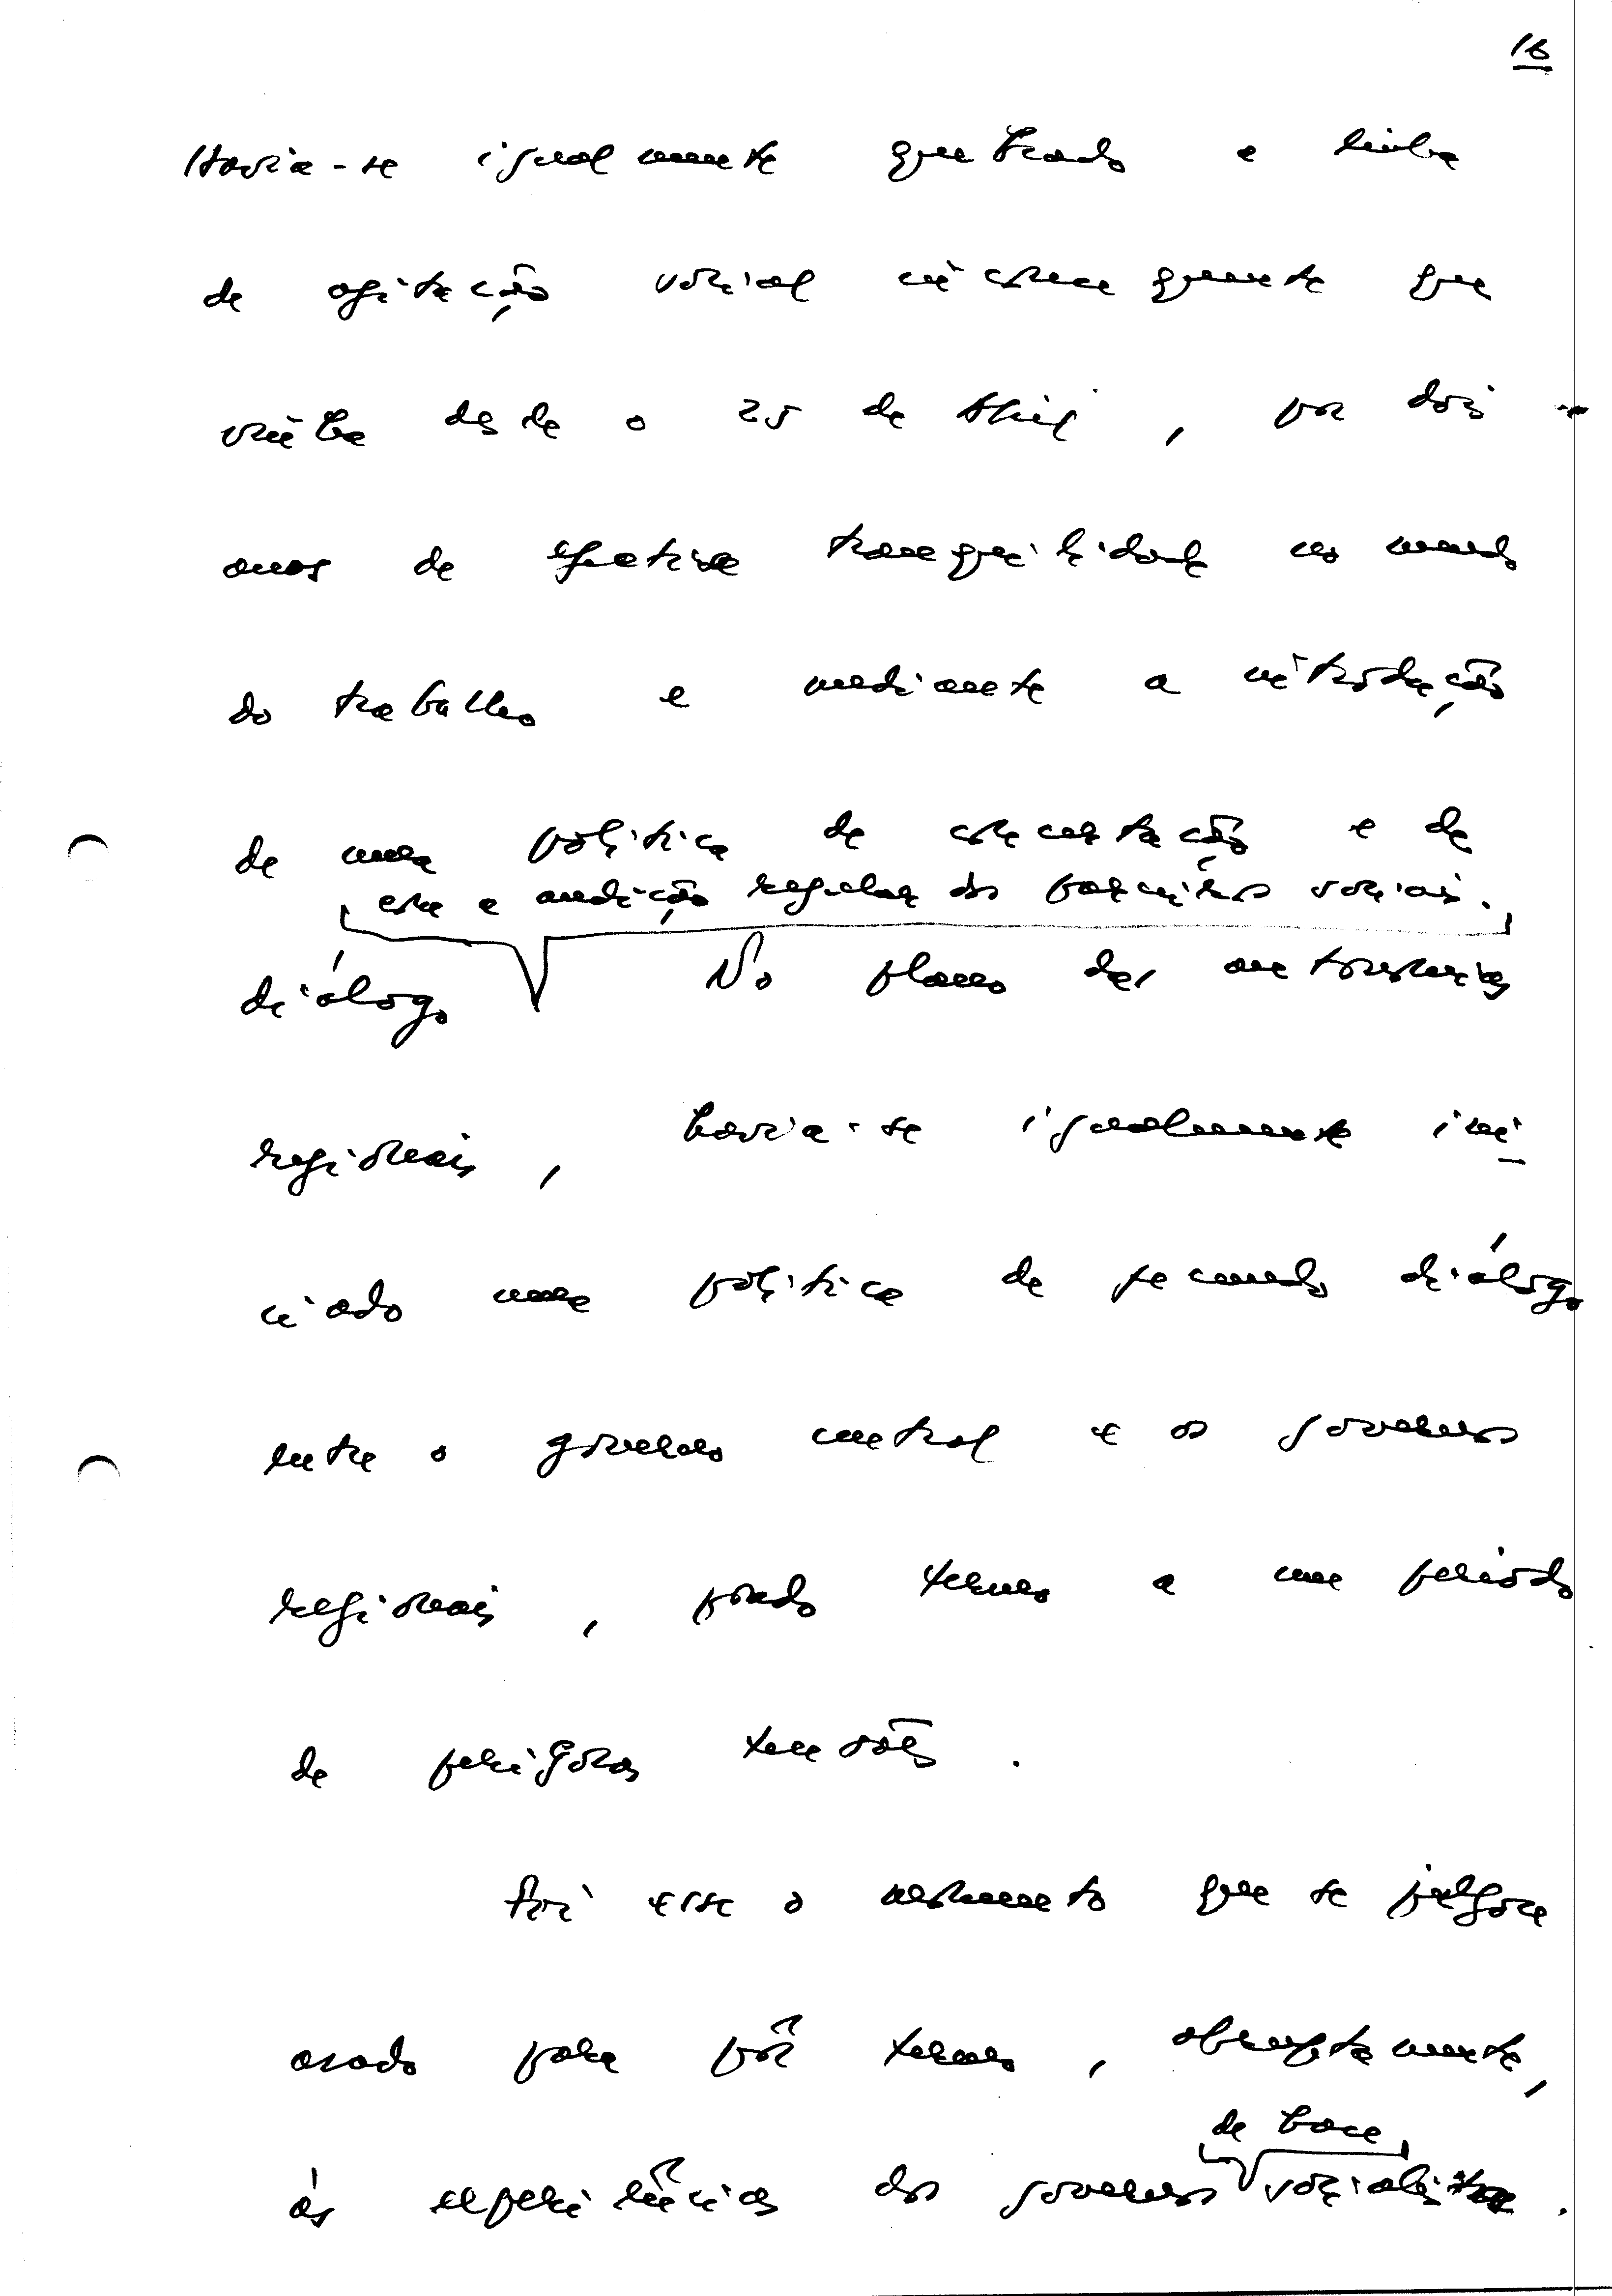 16
Havia-se igualmente quebrado a linha
de agitação social inconsequente que
vinha desde o 25 de Abril, por dois
anos de efectiva tranquilidade no mundo
do trabalho e mediante a introdução
de uma política de concertação e de
com a audição regular dos parceiros sociais.
diálogo No plano das autonomias
regionais, havia-se igualmente ini-
ciado uma política de fecundo diálogo
entre o governo central e os governos
regionais, pondo termo a um período
de perigosas tensões.
Foi esse o momento que se julgou
asado para pôr termo, abruptamente,
de base
às experiências dos governos socialista.